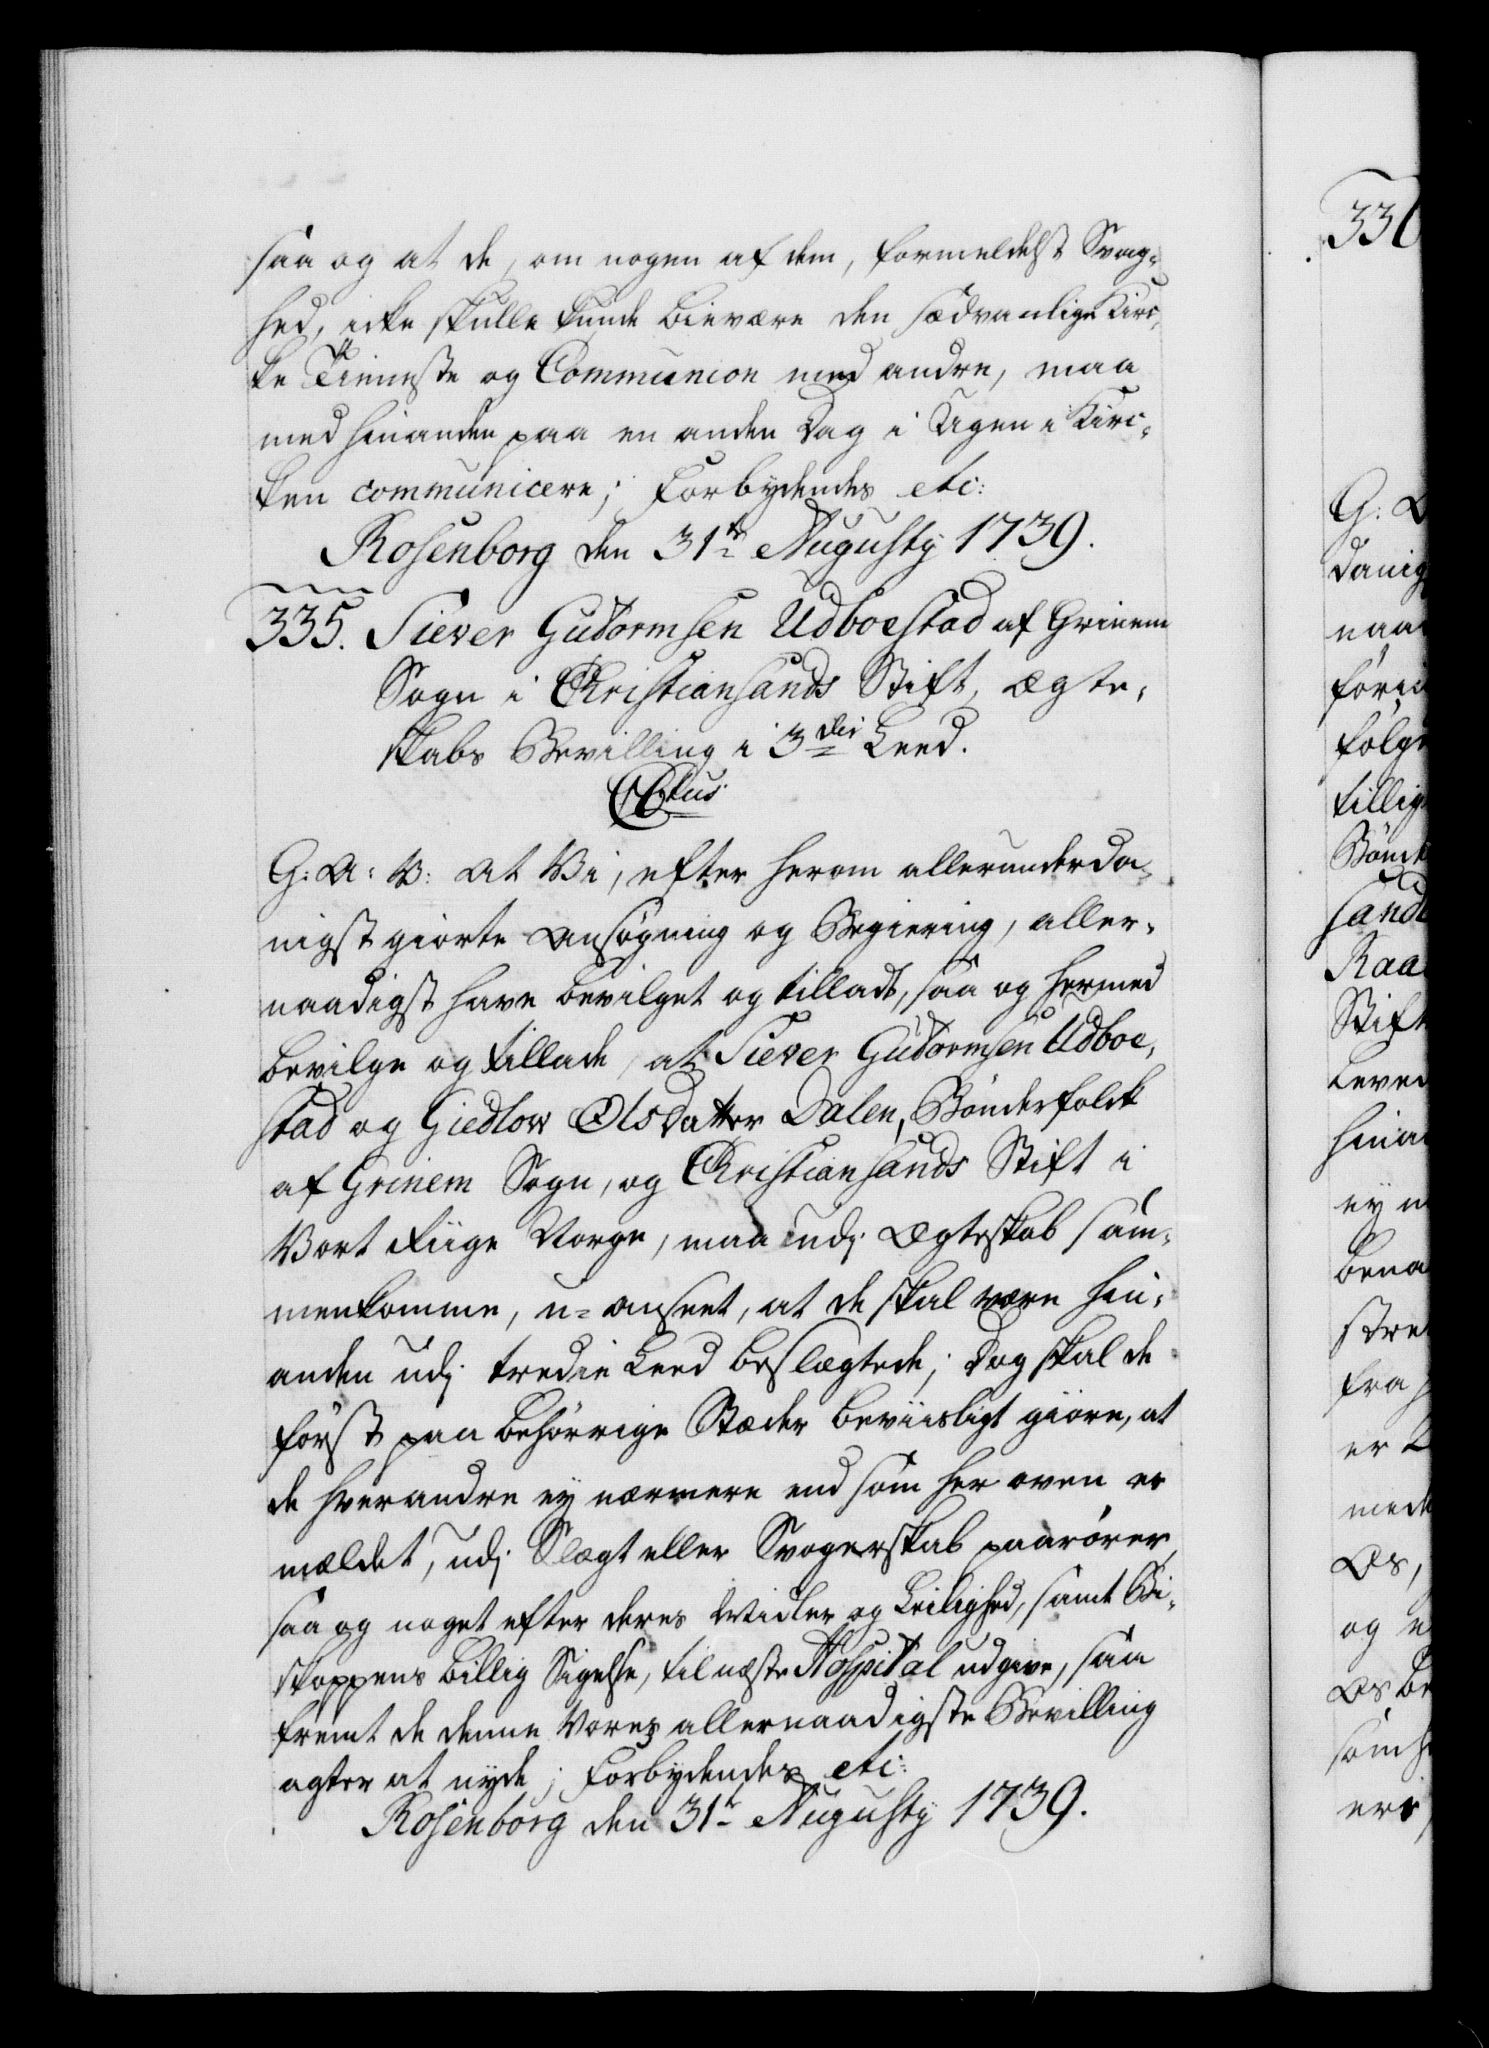 saa og at de, om nogen af dem, formedelst Svag-
hed, icke skulle kunde bievære den sædvanlige Kirc-
ke Tieneste og Communion med andre, maa
med hinanden paa en anden Dag i Ugen i Kirc-
ken communicere; Forbydendes etc:
Rosenborg den 31te Augusty 1739.
335. Siever Gudormsen Udboestad af Grinem
Sogn i Christiansands Stift, Ægte-
skabs Bevilling i 3die Leed.
C6tus
G: A: V: at Vi, efter herom allerunderda-
nigst giorte Ansøgning og Begiering, aller-
naadigst have bevilget og tilladt, saa og hermed
bevilge og tillade, at Siever Gudormsen Udboe-
stad og Giedlow Olsdatter Dalen, Bønderfolck
af Grinem Sogn, og Christiansands Stift i
Vort Riige Norge, maa udj Ægteskab sam-
menkomme, u-anseet, at de skal være hin-
anden udj tredie Leed beslægtede; Dog skal de
først paa behørrige Stæder beviisligt giøre, at
de hverandre ey nærmere end som her oven er
mældet, udj Slægt eller Svogerskab paarører,
saa og noget efter deres Midler og Leilighed, samt Bi-
skoppens billig Sigelse, til næste Hospital udgive, saa
fremt de denne Vores allernaadigste Bevilling
agter at nyde; Forbydendes etc:
Rosenborg den 31te Augusty 1739.